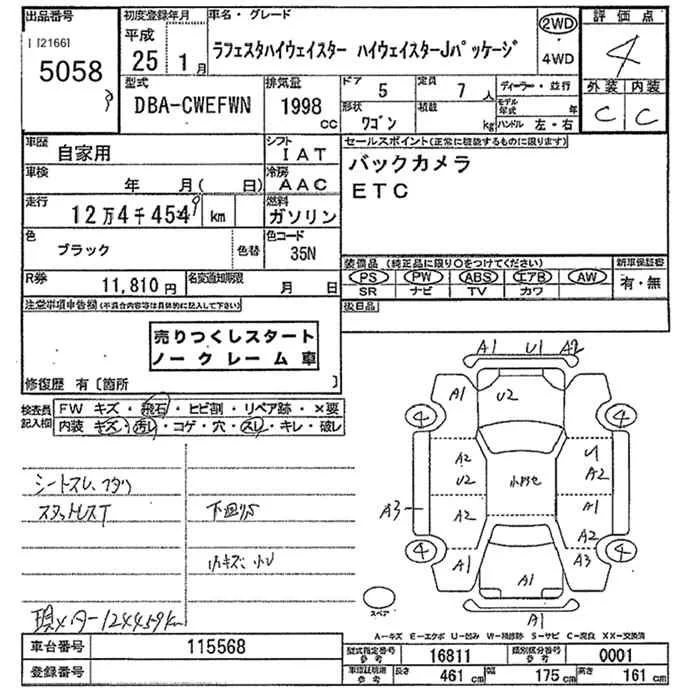 出品番号 初度登録年月 車名・グレード 2WD 評価点
1121661 平成 ラフェスタハイウェイスター ハイウェイスターJパッケージ 4
5058 25年 1月 4WD
外装 内装
C C
型式 排気量 ドア 5 定員 7人 ディーラー・並行
DBA-CWEFWN 1998cc 形状 ワゴン 積載 kg モデル年式 年
ハンドル 左・右
車歴 自家用 シフト IAT セールスポイント(正常に機能するものに限ります)
車検 年 月( 日) 冷房 AAC バックカメラ
ETC
走行 12万4千454 9 km 燃料 ガソリン
色 ブラック 色替 色コード 35N
装備品 (純正品に限り〇をつけてください) 新車保証書
PS PW ABS エアB AW 有・無
SR ナビ TV カワ
R券 11,810円 名変通知期限 月 日
後日品
注意事項申告欄(不具合内容等は具体的に記入して下さい)
売りつくしスタート
ノークレーム車
修復歴 有〔箇所 〕
検査員記入欄 FW キズ・飛石・ヒビ割・リペア跡・×要
内装 キズ・汚レ・コゲ・穴・スレ・キレ・破レ
シートスレ、
スタットレスT
下回り
小キズ、
現メーター124459km
A1 U1 A2
A1 U2
4 4
A2 U1
U2 A2
A3 A2 A1
A2
4 4
A1 A3
A1
A1
スペア
A-キズ E-エクボ U-凹み W-補修跡 S-サビ C-腐食 XX-交換済
車台番号 115568 型式指定番号 参考 16811 類別区分番号 参考 0001
登録番号 車検証記載 参考 長さ 461cm 幅 175cm 高さ 161cm